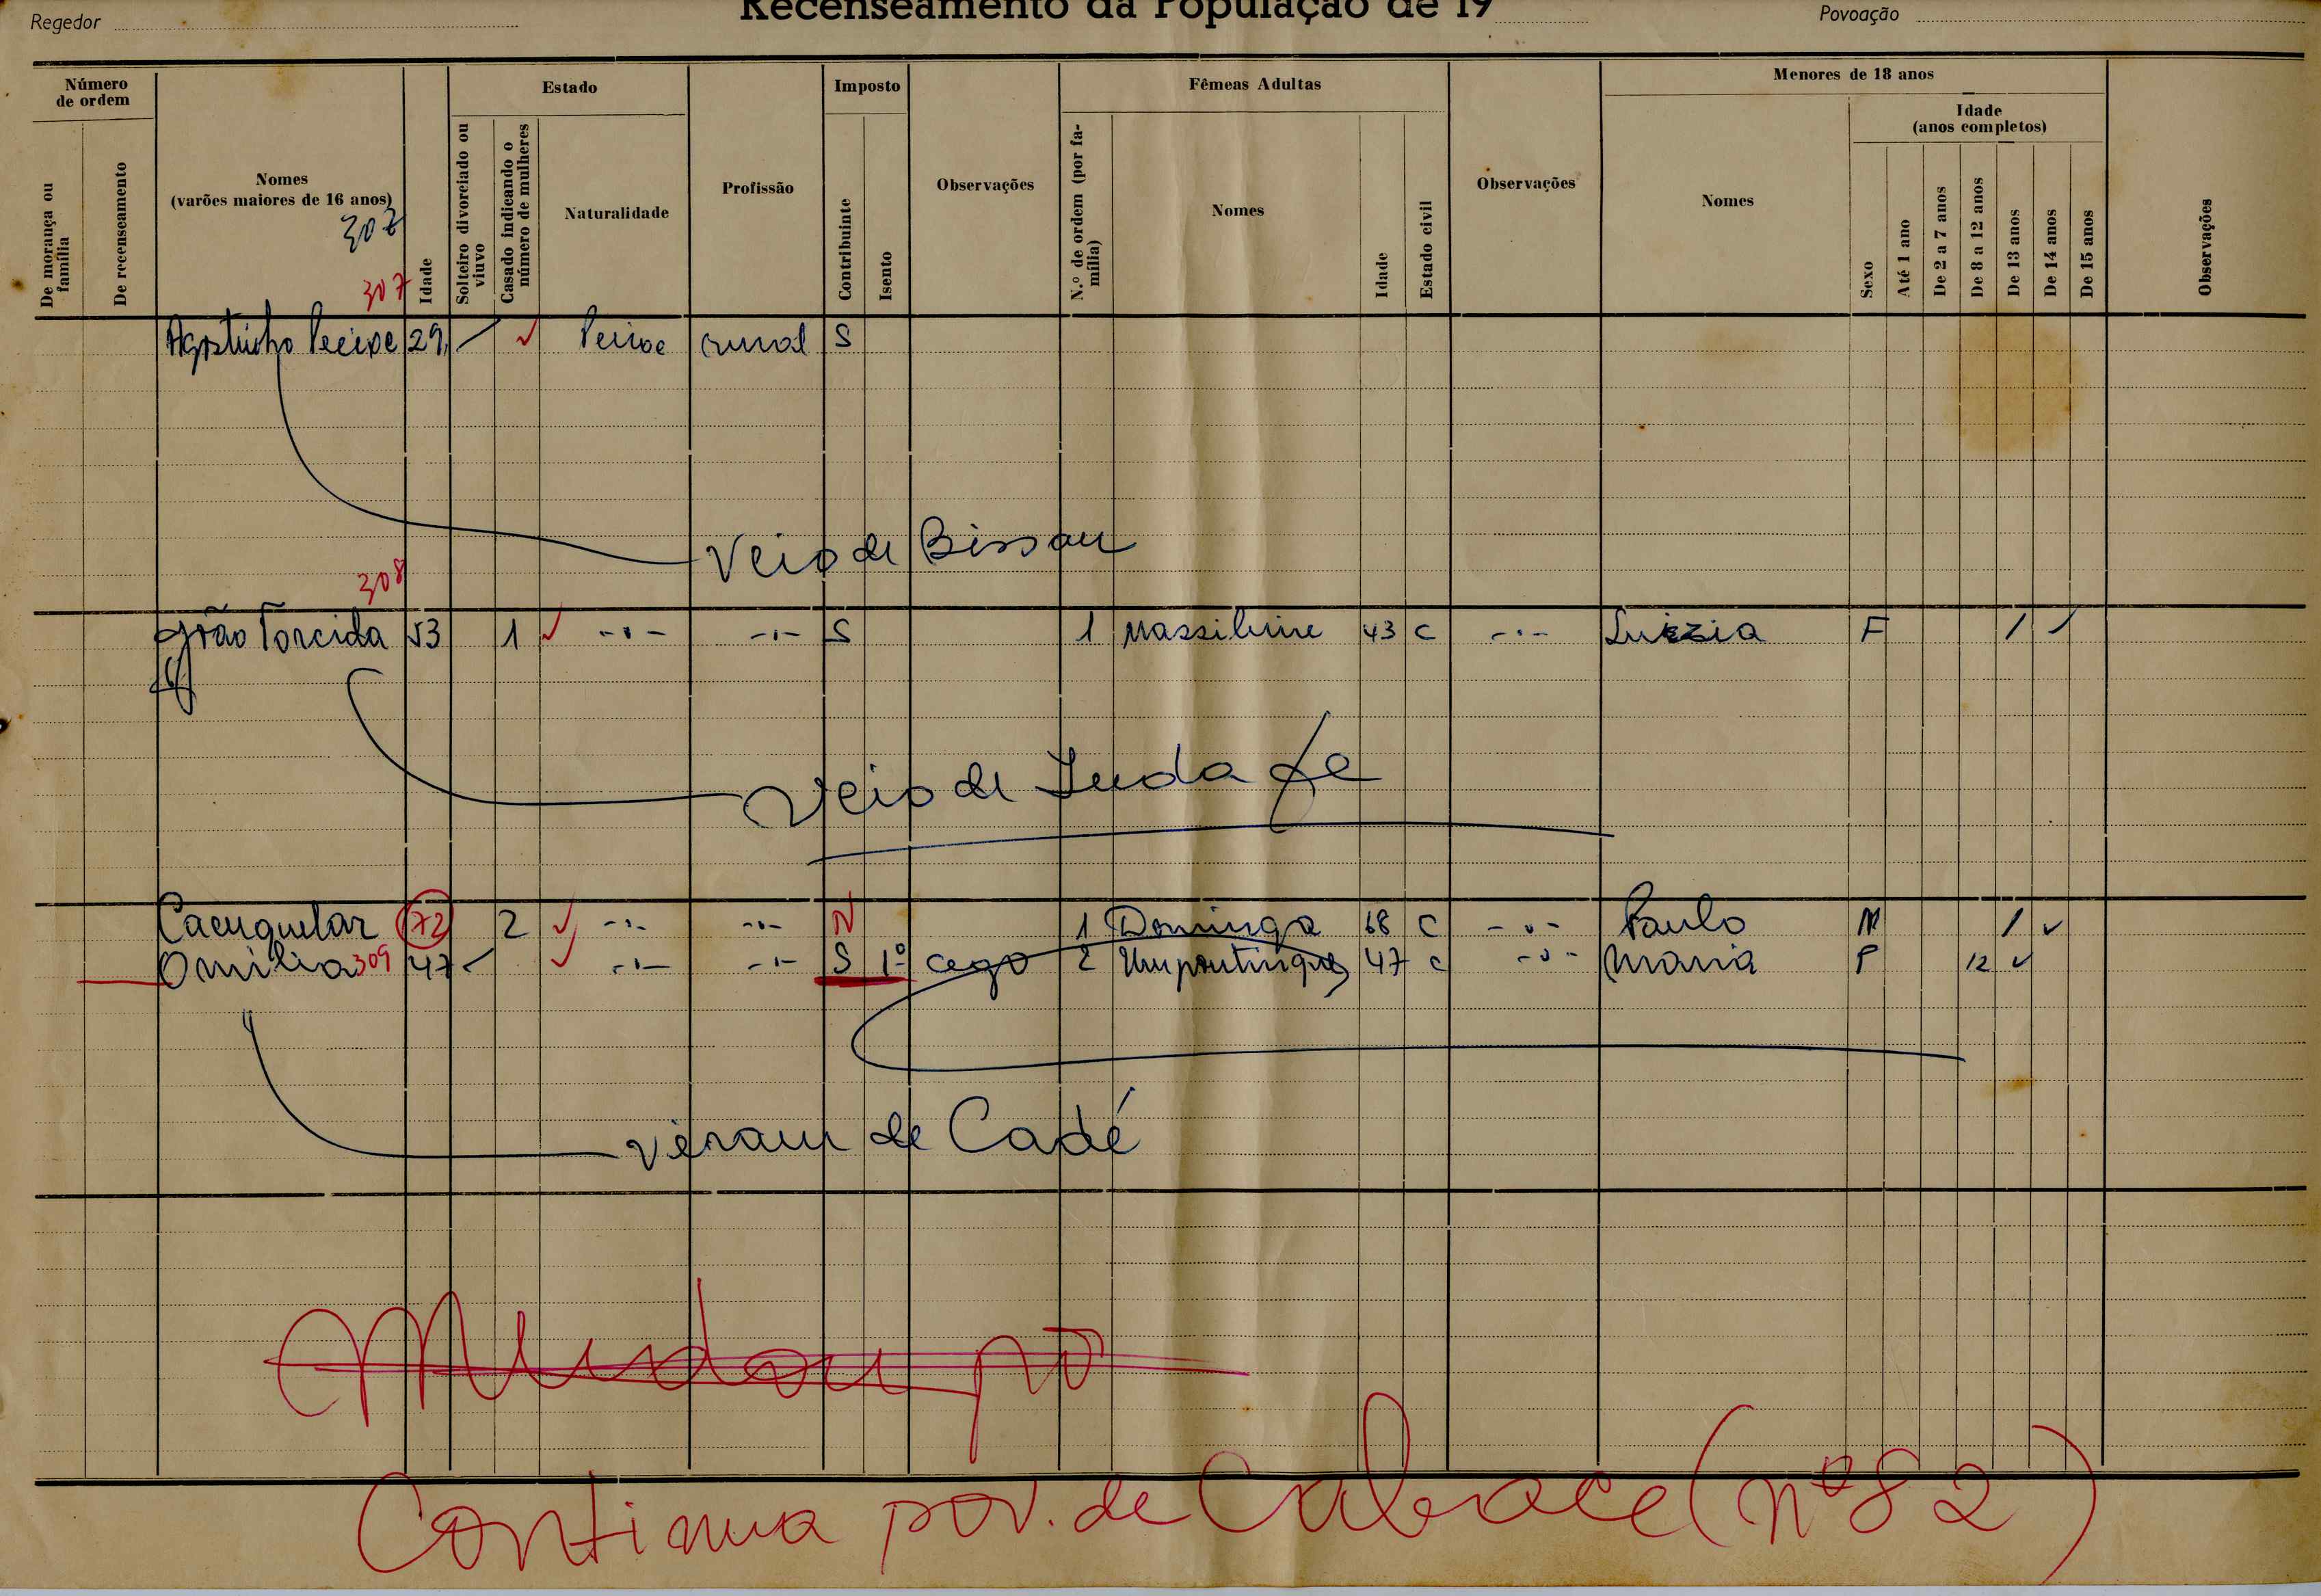 Regedor Recenseamento da População de 19 Povoação
Número de ordem
De morança ou família
De recenseamento
Nomes (varões maiores de 16 anos)
307
307
Idade
Estado
Solteiro divorciado ou viuvo
Casado indicando o número de mulheres
Naturalidade
Profissão
Imposto
Contribuinte
Isento
Observações
Fêmeas Adultas
N.º de ordem (por família)
Nomes
Idade
Estado civil
Observações
Menores de 18 anos
Nomes
Idade (anos completos)
Sexo
Até 1 ano
De 2 a 7 anos
De 8 a 12 anos
De 13 anos
De 14 anos
De 15 anos
Observações
Agostinho 29 rural S
Veio de Bissau
308
João Torcida 53 1 S 1 43 C Luizia F
Veio de
72 2 N 1 Dominga 68 C Paulo M
Omilia 309 47 S 1º cego 2 47 C Maria F 12
veram de Cadé
Mudou pº
Continua pov. de Cabrace (nº 82)